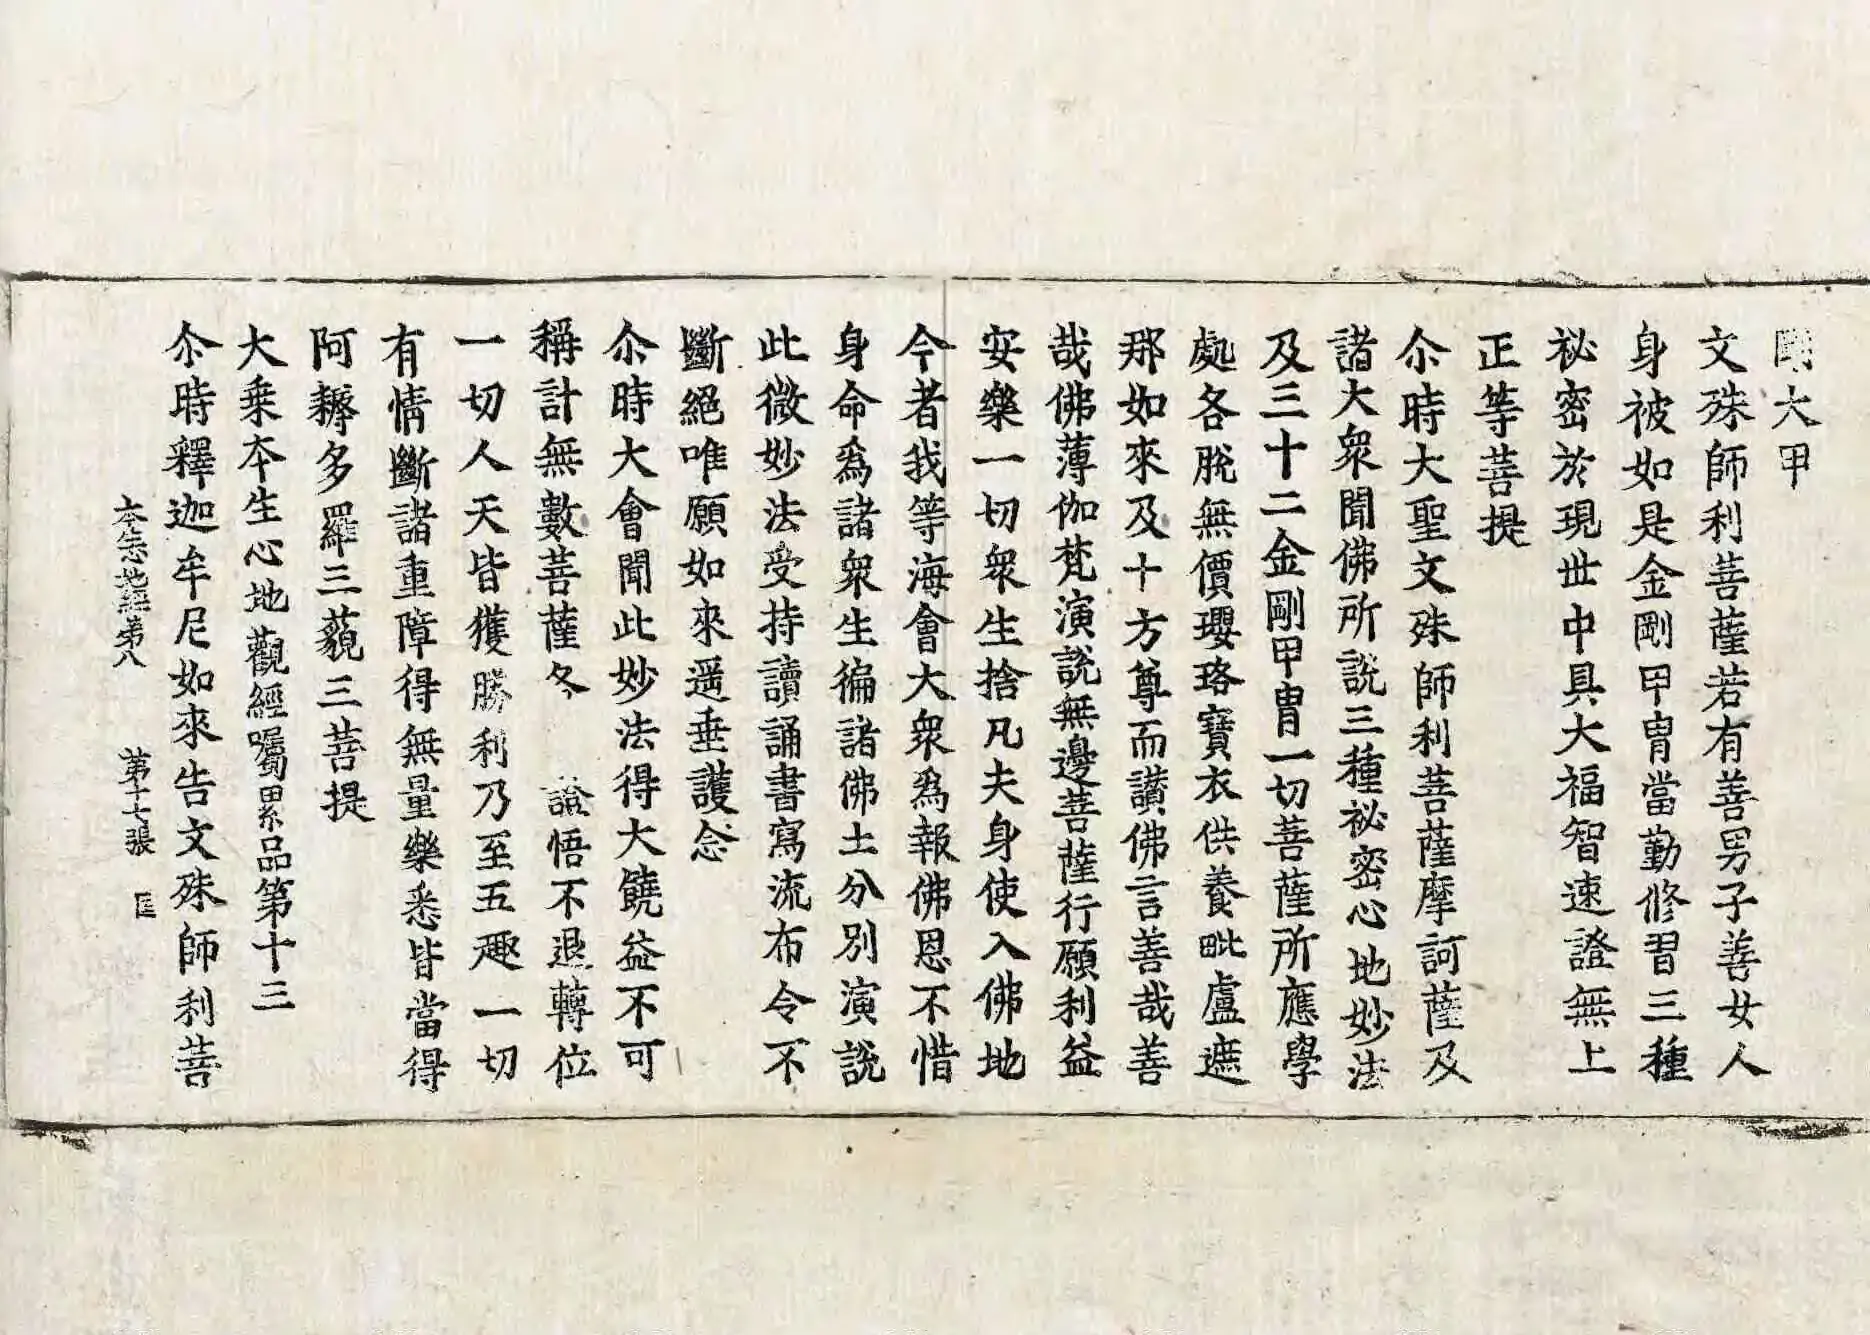 剛大甲
文殊師利菩薩若有善男子善女人
身被如是金剛甲冑當勤修習三種
祕密於現世中具大福智速證無上
正等菩提
尒時大聖文殊師利菩薩摩訶薩及
諸大衆聞佛所說三種祕密心地妙法
及三十二金剛甲冑一切菩薩所應學
處各脫無價瓔珞寶衣供養毗盧遮
那如來及十方尊而讃佛言善哉善
哉佛薄伽梵演說無邊菩薩行願利益
安樂一切衆生捨凡夫身使入佛地
今者我等海會大衆爲報佛恩不惜
身命爲諸衆生徧諸佛土分別演說
此微妙法受持讀誦書寫流布令不
斷絕唯願如來遥垂護念
尒時大會聞此妙法得大饒益不可
稱計無數菩薩各 證悟不退轉位
一切人天皆獲勝利乃至五趣一切
有情斷諸重障得無量樂悉皆當得
阿耨多羅三藐三菩提
大乘夲生心地觀經囑累品第十三
尒時釋迦牟尼如來告文殊師利菩
夲生心地經第八 第十七張 匡